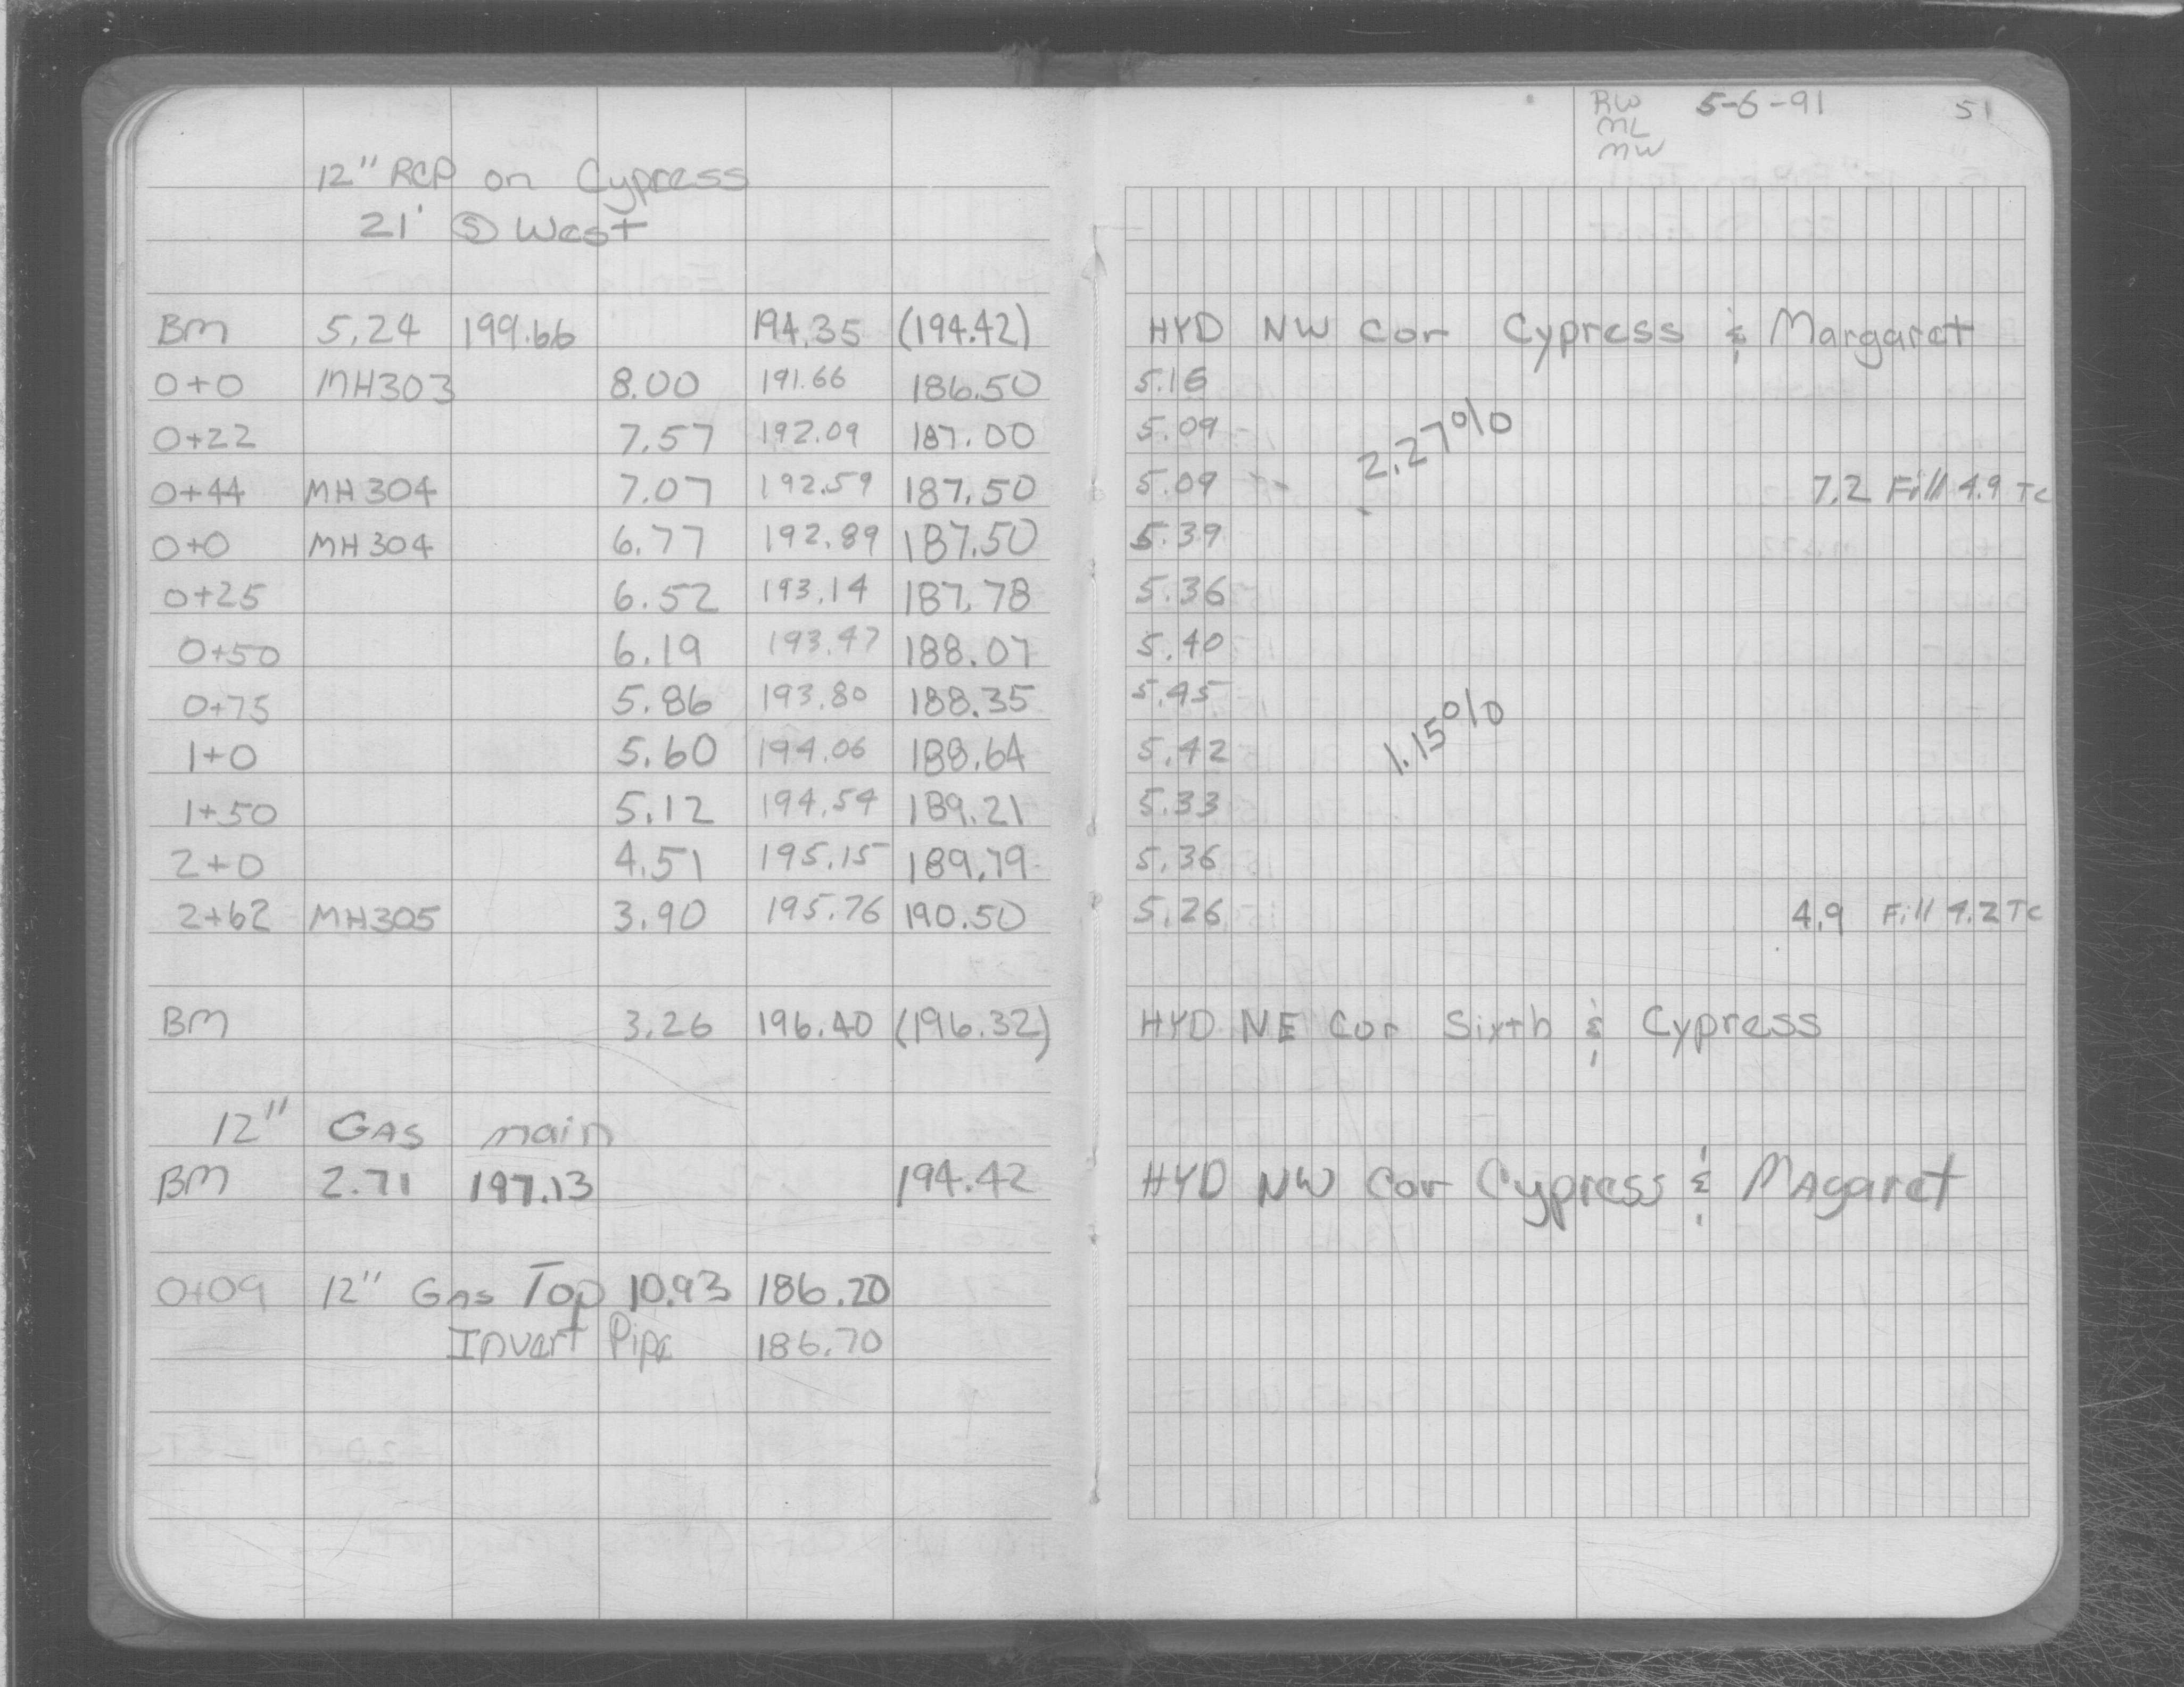 RW 5-6-91 51
ML
MW
12" RCP on Cypress
21' Ⓢ West
BM 5.24 199.66 194.35 (194.42) HYD NW Cor Cypress & Margaret
0+0 MH303 8.00 191.66 186.50 5.16
0+22 7.57 192.09 187.00 5.09
2.27%
0+44 MH304 7.07 192.59 187.50 5.09 7.2 Fill 4.9 TC
0+0 MH304 6.77 192.89 187.50 5.39
0+25 6.52 193.14 187.78 5.36
0+50 6.19 193.47 188.07 5.40
0+75 5.86 193.80 188.35 5.45
1.15%
1+0 5.60 194.06 188.64 5.42
1+50 5.12 194.54 189.21 5.33
2+0 4.51 195.15 189.79 5.36
2+62 MH305 3.90 195.76 190.50 5.26 4.9 Fill 4.2 TC
BM 3.26 196.40 (196.32) HYD NE Cor Sixth & Cypress
12" GAS main
BM 2.71 197.13 194.42 HYD NW Cor Cypress & MAgaret
0+09 12" GAs Top 10.93 186.20
Invert Pipe 186.70